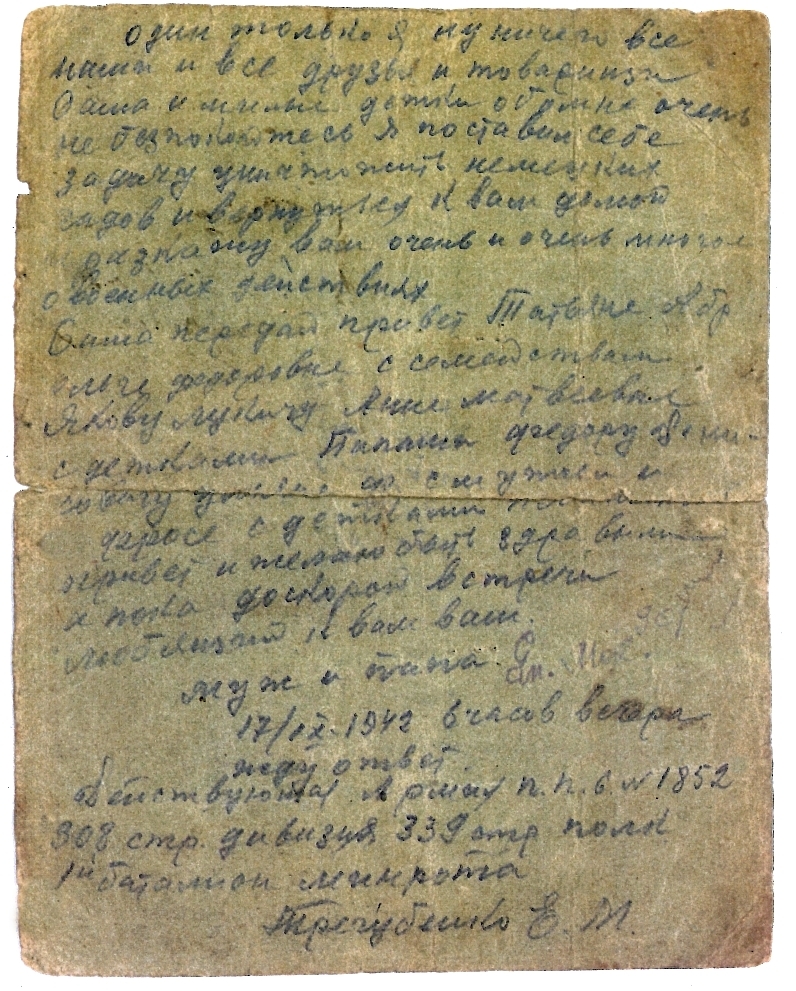 один только я ну ничего все
наши и все друзья и товарищи
Саша и милые детки обо мне очень
не безпокойтесь я поставил себе
задачу уничтожить немецких
гадов и вернуться к вам домой
и разкажу вам очень и очень много
о военных действиях
Саша передай привет Татьяне Абр
ольге федоровне с семейством
Якову лукичу Анне матвеевне
с детками Папаши федору дени-
совичу с мужем и
с детками
привет и желаю быть здравыми
и пока доскорой встречи
любящий к вам ваш.
муж и папа
17/IX-1942 6 часов вечера
жду ответ.
Действующая Армия п.п.с. N 1852
308 стр. дивизия 339 стр полк
1й баталион минрота
Трегубенко Е. М.